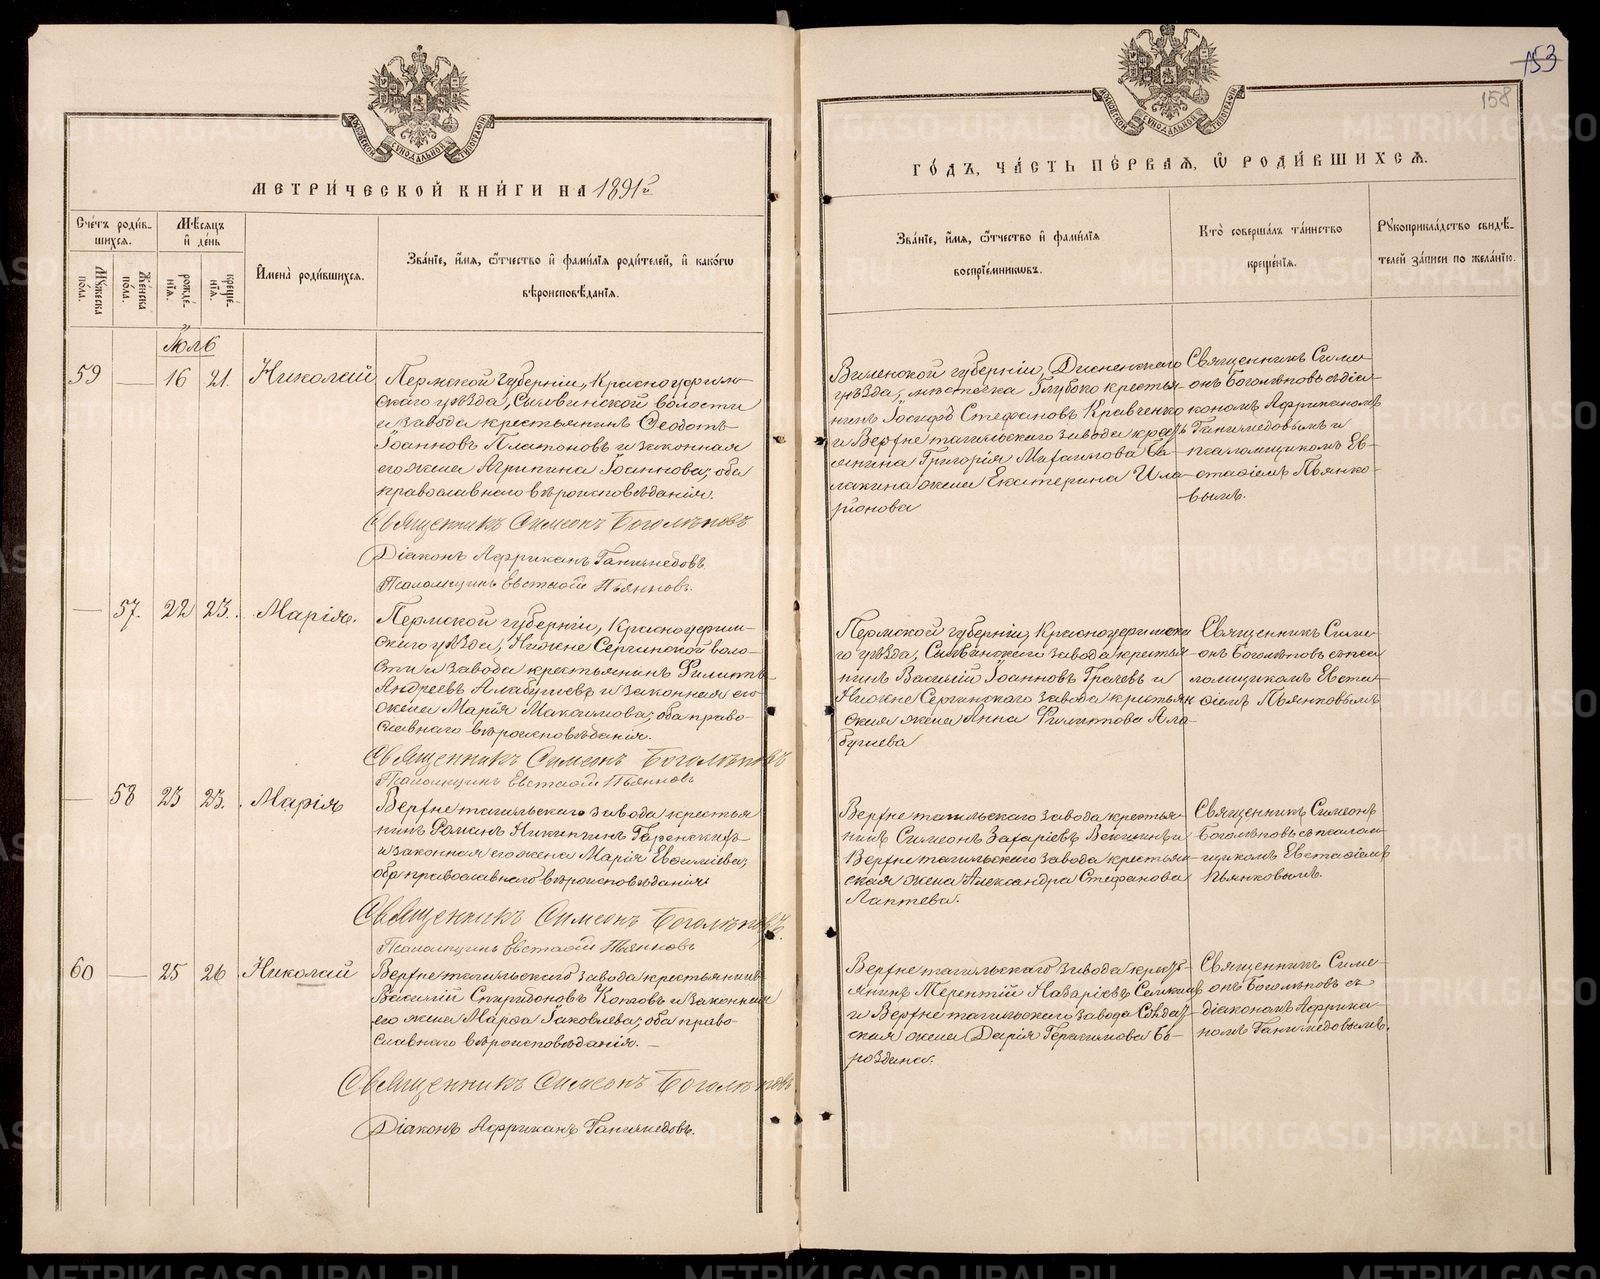 153
158
МОСКОВСКОЙ СѴНОДАЛЬНОЙ ТИПОГРАФІИ
МЕТРИ́ЧЕСКОЙ КНИ́ГИ НА 1891 й
Сче́тъ роди́в-
шихсѧ.
Мѣ́сѧцъ
и҆ де́нь
Мꙋ́жеска
по́ла.
Же́нска
по́ла.
рожде́-
нїѧ.
креще́-
нїѧ.
И҆мена̀ роди́вшихсѧ.
Зва́нїе, и҆́мѧ, ѻ҆́тчество и҆ фами́лїѧ роди́телей, и҆ како́гѡ
вѣроисповѣ́данїѧ.
Іюль
59 — 16 21. Николай
Пермской губерніи, Красноуфим-
скаго уѣзда, Сылвинской волости
и завода крестьянинъ Ѳеодотъ
Іоанновъ Платоновъ и законная
его жена Агрипина Іоаннова; оба
православнаго вѣроисповѣданія.
Священникъ Симеонъ Боголѣповъ
Діаконъ Африканъ Ганимедовъ.
Псаломщикъ Евстаѳій Пьянковъ.
— 57. 22 23. Марія.
Пермской губерніи, Красноуфим-
скаго уѣзда, Нижне Сергинской воло-
сти и завода крестьянинъ Филиппъ
Андреевъ Алабушевъ и законная его
жена Марія Максимова; оба право-
славнаго вѣроисповѣданія.
Священникъ Симеонъ Боголѣповъ
Псаломщикъ Евстаѳій Пьянковъ
— 58 23 23. Марія
Верхне тагильскаго завода крестья
нинъ Романъ Никитинъ
и законная его жена Марія Евѳиміева;
оба православнаго вѣроисповѣданія
Священникъ Симеонъ Боголѣповъ.
Псаломщикъ Евстаѳій Пьянковъ
60 — 25 26 Николай
Верхне тагильскаго завода крестьянинъ
Василій Спиридоновъ и законная
его жена Марѳа Іаковлева; оба право-
славнаго вѣроисповѣданія. —
Священникъ Симеонъ Боголѣповъ
Діаконъ Африканъ Ганимедовъ.
ГО́ДЪ, ЧА́СТЬ ПЕ́РВАѦ, Ѡ҆ РОДИ́ВШИХСѦ.
МОСКОВСКОЙ СѴНОДАЛЬНОЙ ТИПОГРАФІИ
Зва́нїе, и҆́мѧ, ѻ҆́тчество и҆ фами́лїѧ
воспрїе́мниковъ.
Кто̀ соверша́лъ та́инство
креще́нїѧ.
Рꙋкоприкла́дство свидѣ́-
телей за́писи по жела́нїю.
Виленской губерніи, Дисненскаго
уѣзда, мѣстечка Глубоко крестья-
нинъ Іосифъ Стефановъ Кравченко
и Верхне тагильскаго завода
Григорія Михаилова
жена Екатерина Ила-
ріонова
Священникъ Симе-
онъ Боголѣповъ съ діа-
кономъ Африканомъ
Ганимедовымъ и
псаломщикомъ Ев-
стаѳіемъ Пьянко-
вымъ.
Пермской губерніи, Красноуфимска
го уѣзда, Сылвинскаго завода крестья
нинъ Василій Іоанновъ Грачевъ и
Нижне Сергинскаго завода крестьян
ская жена Анна Филиппова Ала-
бушева
Священникъ Симе-
онъ Боголѣповъ съ пса
ломщикомъ Евста-
ѳіемъ Пьянковымъ
Верхне тагильскаго завода крестья-
нинъ Симеонъ Захаріевъ и
Верхне тагильскаго завода крестьян-
ская жена Александра Стефанова
Лаптева.
Священникъ Симеонъ
Боголѣповъ съ псалом-
щикомъ Евстаѳіемъ
Пьянковымъ.
Верхне тагильскаго завода кресть-
янинъ Терентій Назаріевъ
и Верхне тагильскаго завода
ская жена Дарія Герасимова Бо-
роздина.
Священникъ Симе-
онъ Боголѣповъ съ
діакономъ Африка-
номъ Ганимедовымъ.
METRIKI.GASO-URAL.RU